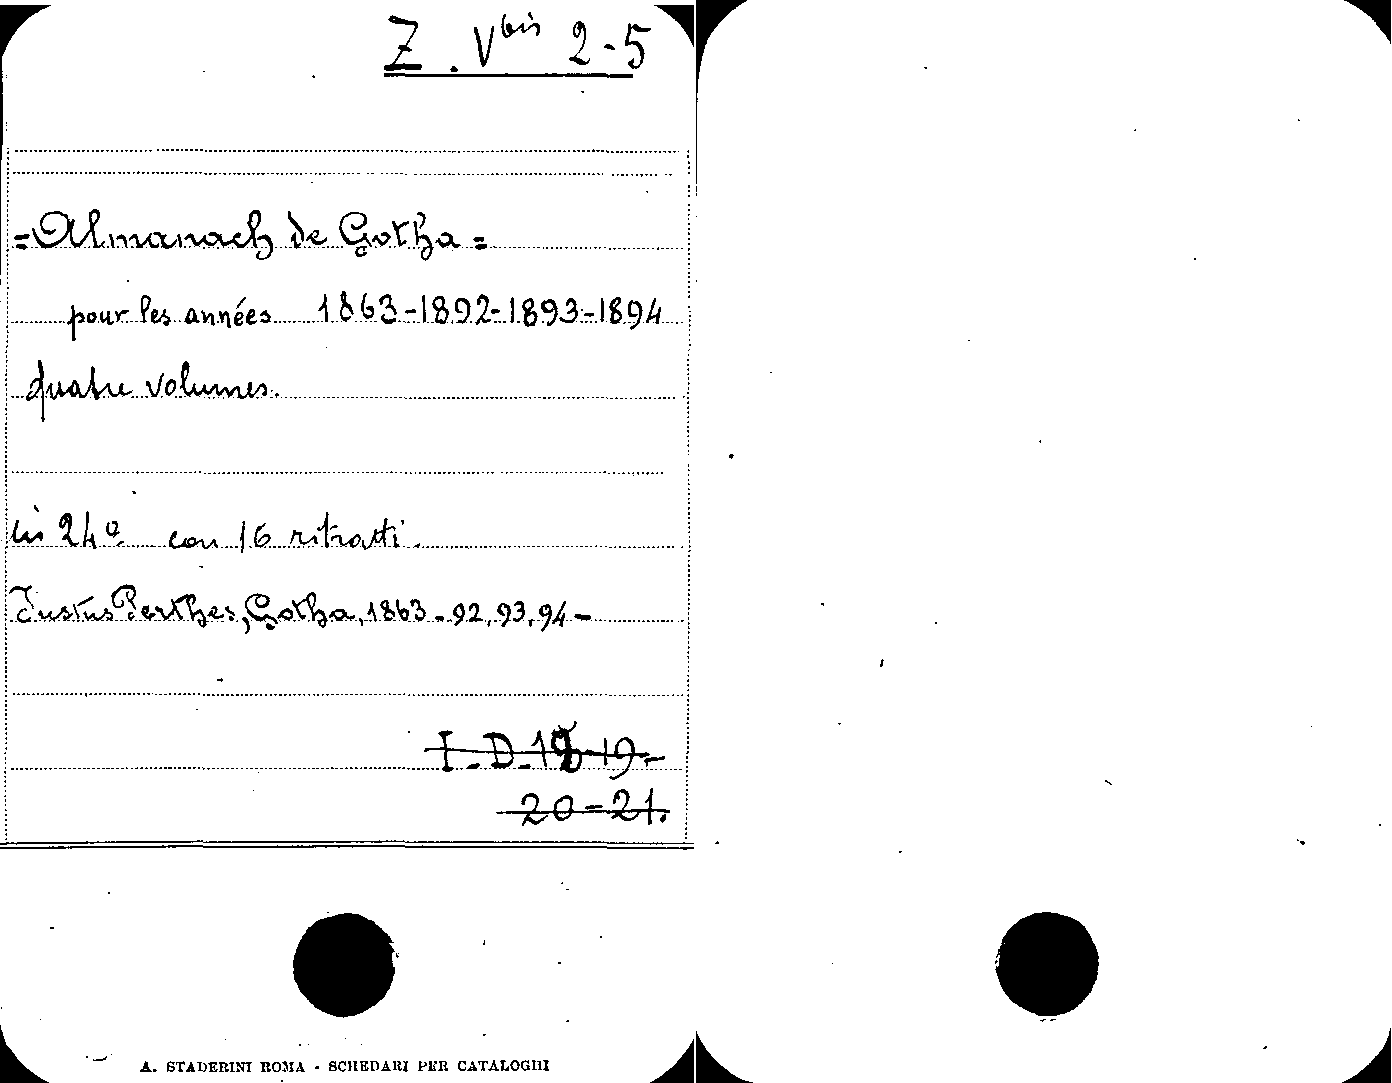 Z. Vbis 2-5
=Almanach de Gotha=
pour les années 1863-1892-1893-1894
quatre volumes.
in 24º con 16 ritratti.
Justus Perthes, Gotha, 1863-92,93,94-
I-D-18-19-
20-21.
A. STADERINI ROMA - SCHEDARI PER CATALOGHI